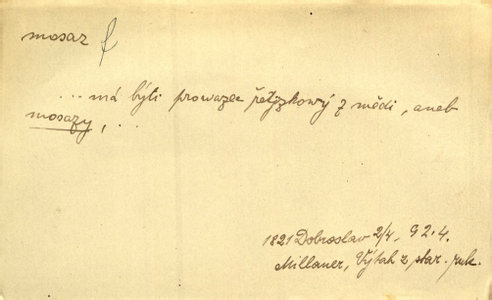 mosaz f
... má býti prowazec řetjzkowý z mědi, aneb
mosazy, ..
1821 Dobroslav 2/4, 92.4.
Millauer, Výtah z star. ruk.